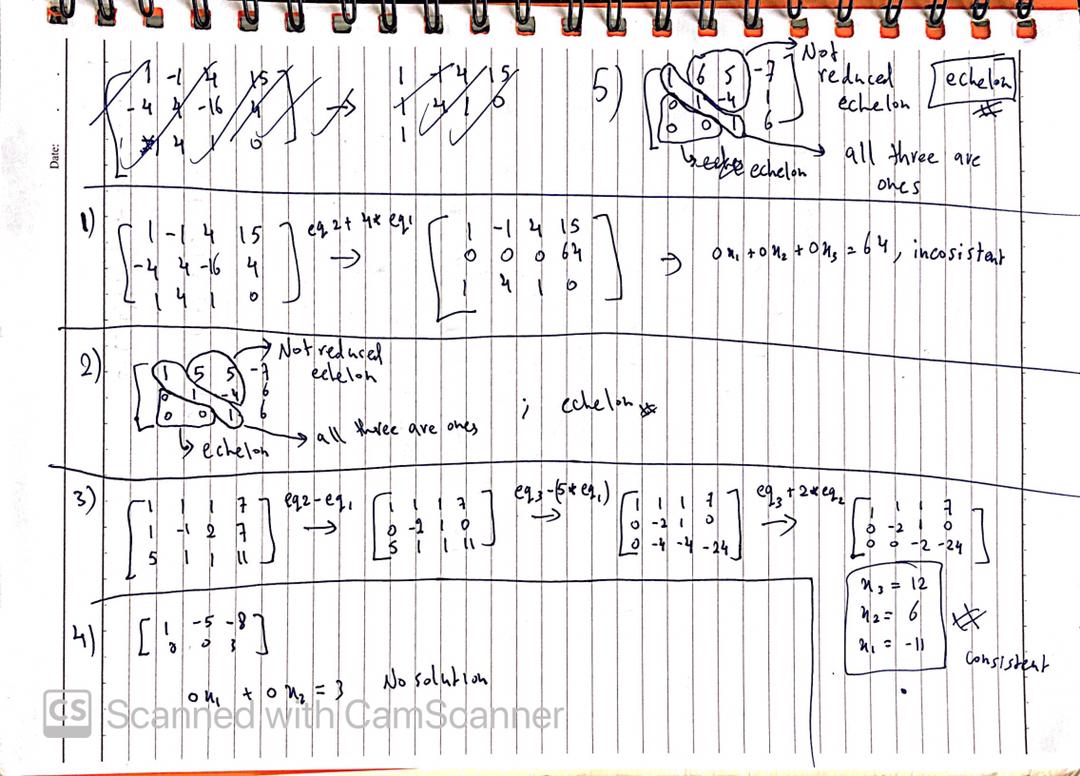 Date:
1 -1 4 15
-4 4 -16 4
4 1 0
→
1 4 15
4 1 0
1
5)
1 6 5 -7
0 1 -4 1
0 0 1 6
Not
reduced
echelon
echelon
echelon
all three are
ones
1)
1 -1 4 15
-4 4 -16 4
1 4 1 0
eq 2 + 4* eq1
→
1 -1 4 15
0 0 0 64
1 4 1 0
→ 0x1 + 0x2 + 0x3 = 64, incosistent
2)
1 5 5 -7
0 1 -4 6
0 0 1 6
Not reduced
echelon
; echelon
all three are ones
echelon
3)
1 1 1 7
1 -1 2 7
5 1 1 11
eq2-eq1
→
1 1 1 7
0 -2 1 0
5 1 1 11
eq3-(5*eq1)
→
1 1 1 7
0 -2 1 0
0 -4 -4 -24
eq3+2*eq2
→
1 1 1 7
0 -2 1 0
0 0 -2 -24
x3 = 12
x2 = 6
x1 = -11
consistent
4)
1 -5 -8
0 0 3
0x1 + 0x2 = 3 No solution
CS Scanned with CamScanner